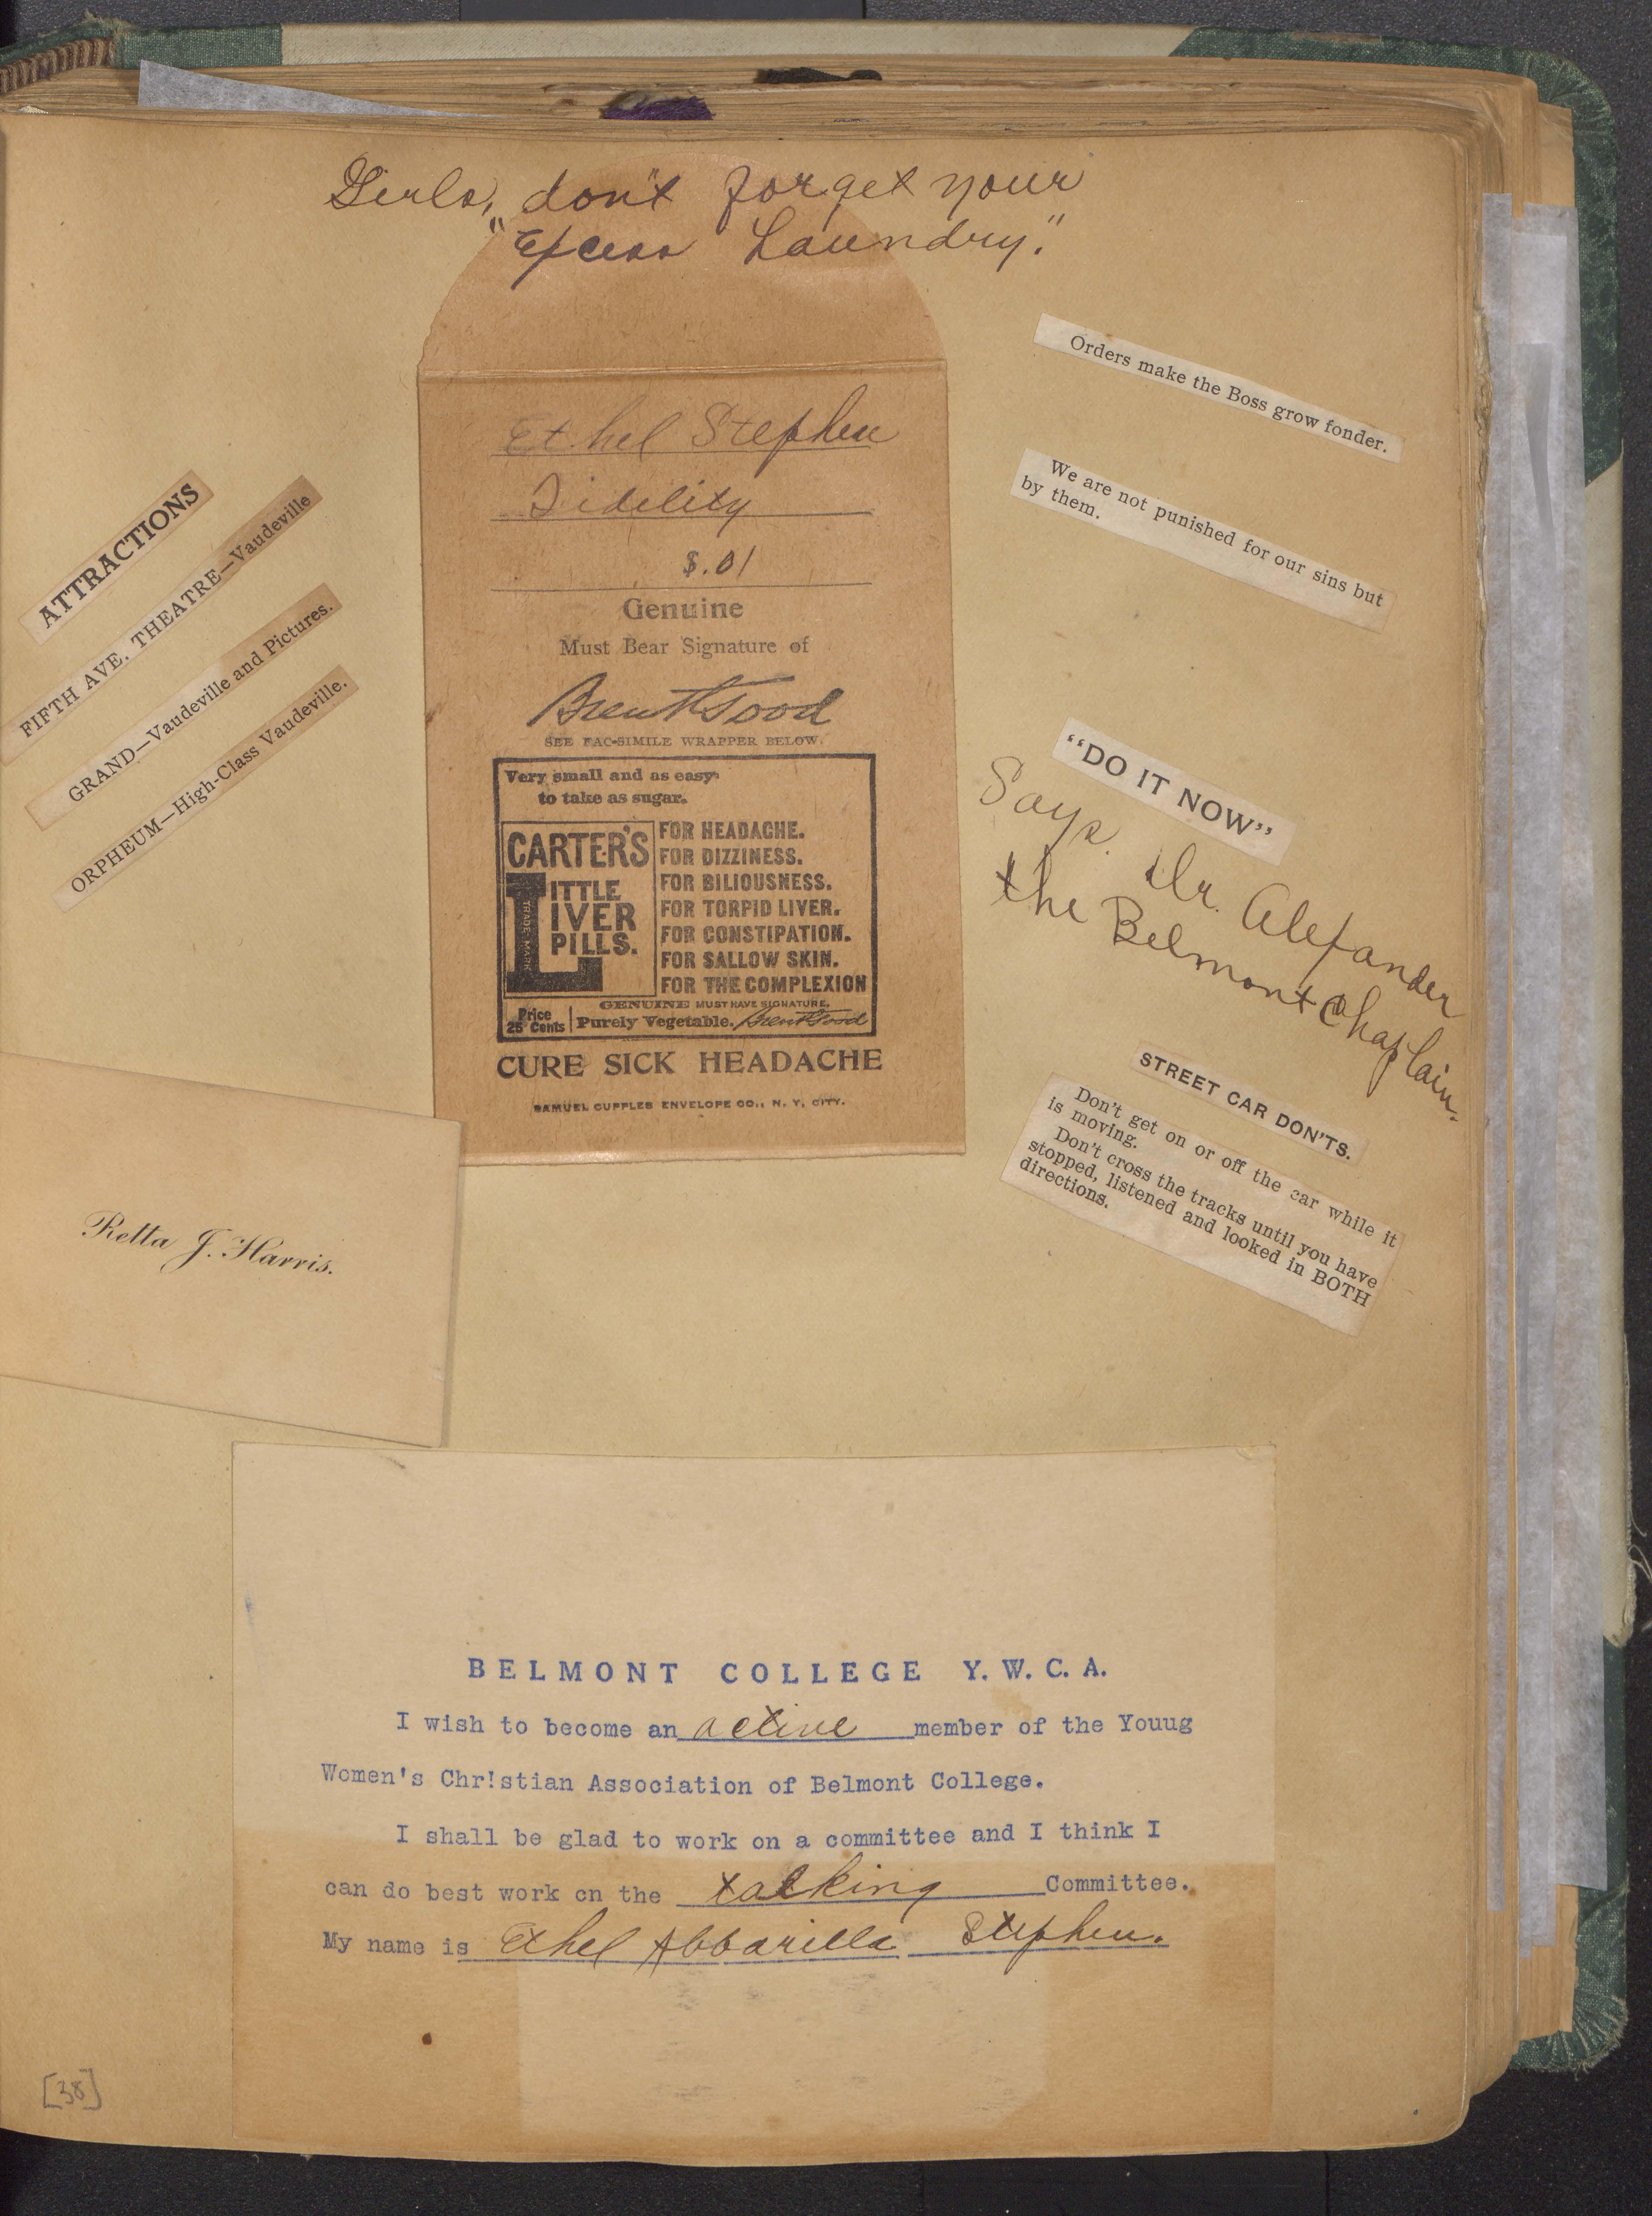 Girls, don't forget your
"Excess Laundry."
Ethel Stephen
Fidelity
$.01
Genuine
Must Bear Signature of
Brent Good
SEE FAC-SIMILE WRAPPER BELOW.
Very small and as easy
to take as sugar.
CARTER'S
LITTLE
LIVER
PILLS.
TRADE MARK
FOR HEADACHE.
FOR DIZZINESS.
FOR BILIOUSNESS.
FOR TORPID LIVER.
FOR CONSTIPATION.
FOR SALLOW SKIN.
FOR THE COMPLEXION
GENUINE MUST HAVE SIGNATURE.
Price
25 Cents
Purely Vegetable. Brent Good
CURE SICK HEADACHE
SAMUEL CUPPLES ENVELOPE CO., N. Y. CITY.
ATTRACTIONS
FIFTH AVE. THEATRE—Vaudeville
GRAND—Vaudeville and Pictures.
ORPHEUM—High-Class Vaudeville.
Orders make the Boss grow fonder.
We are not punished for our sins but
by them.
"DO IT NOW"
Says. Dr. Alexander
the Belmont Chaplain.
STREET CAR DON'TS.
Don't get on or off the car while it
is moving.
Don't cross the tracks until you have
stopped, listened and looked in BOTH
directions.
Retta J. Harris.
BELMONT COLLEGE Y. W. C. A.
I wish to become an active member of the Youug
Women's Chr!stian Association of Belmont College.
I shall be glad to work on a committee and I think I
can do best work on the talking Committee.
My name is Ethel Abbarilla Stephen.
[38]